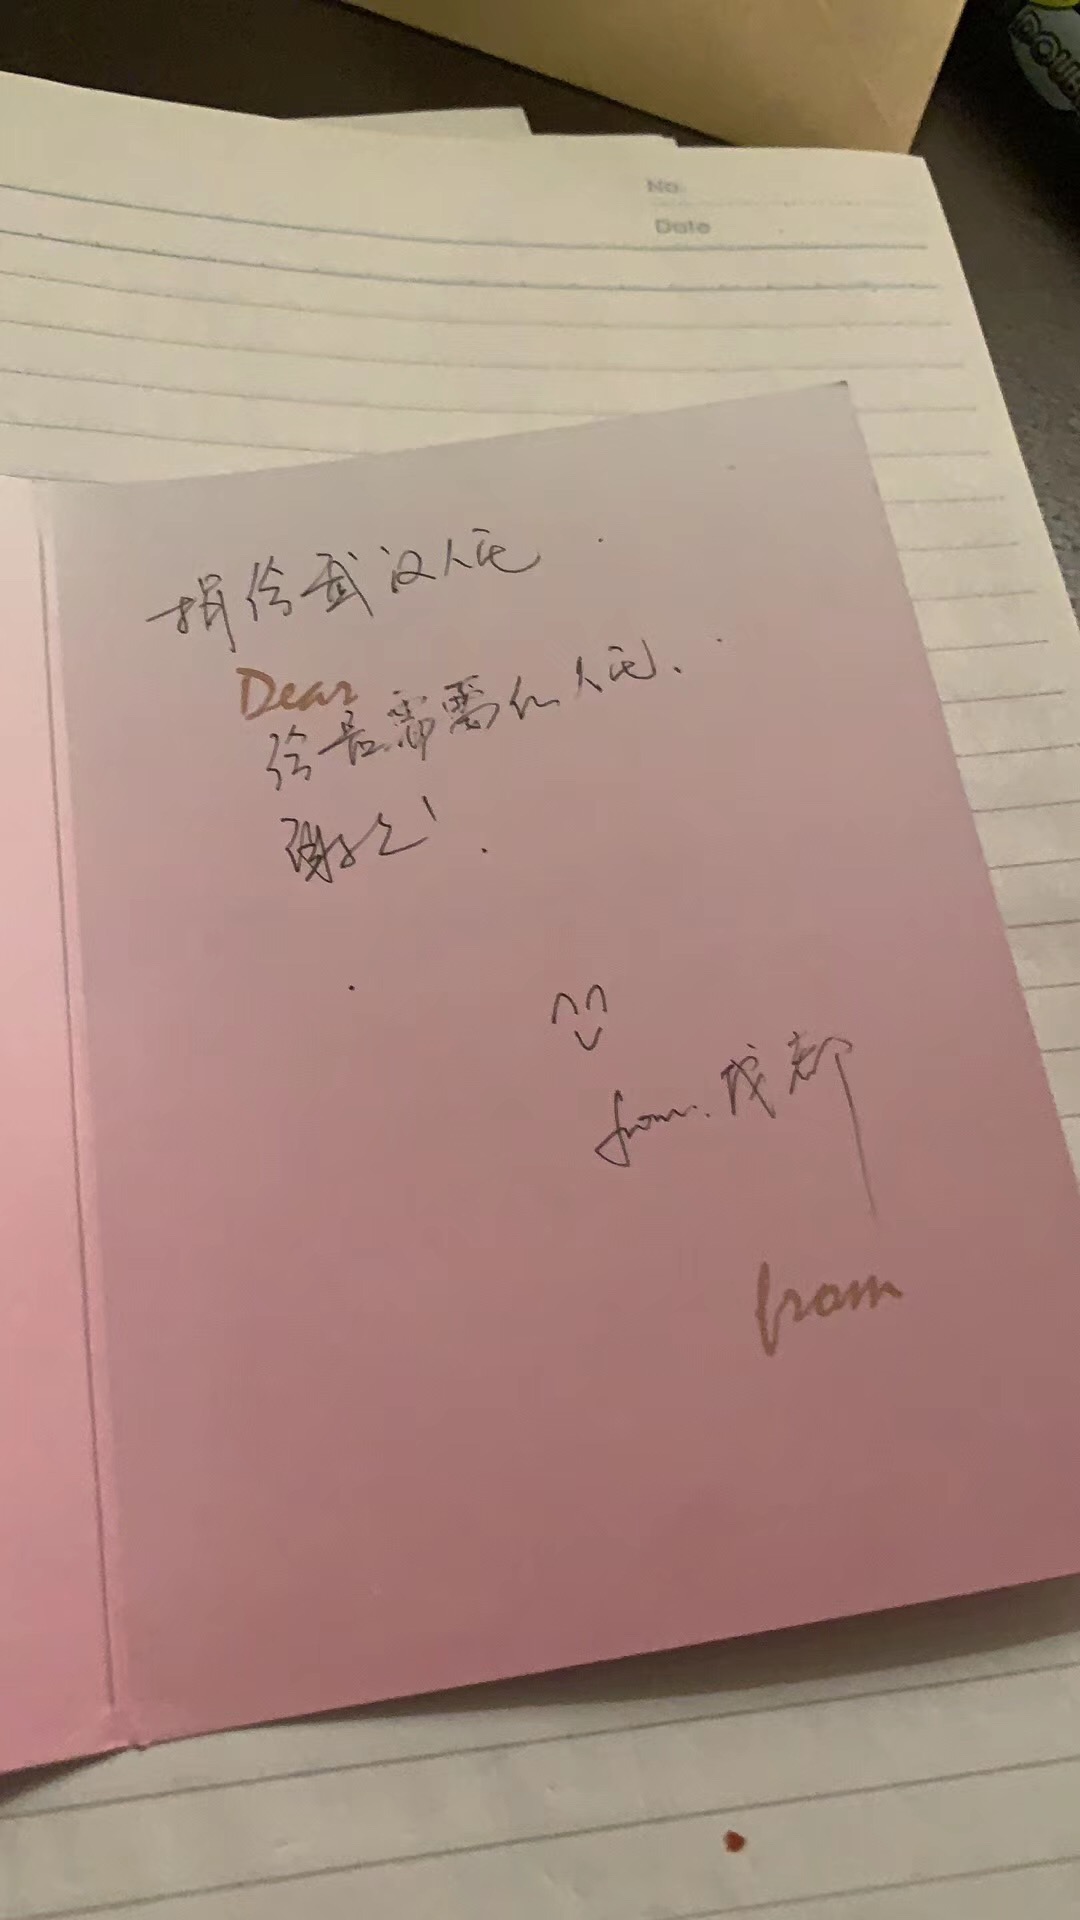 No.
Date
捐给武汉人民
Dear
给最需要的人民.
谢谢!
from. 成都
from